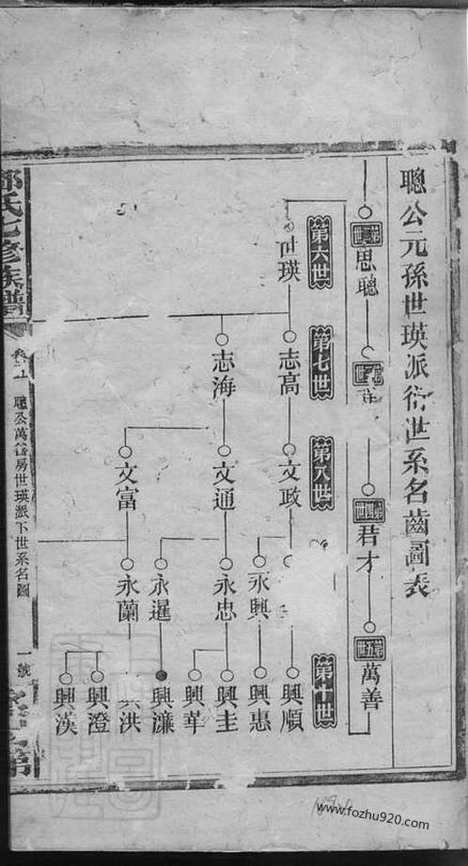 聰公元孫世瑛派衍世系名齒圖表
思聰
君才
第五世
萬善
第六世
世瑛
第七世
志高
志海
第八世
文政
文通
文富
永興
永忠
永暹
永蘭
第十世
興順
興惠
興圭
興華
興濂
洪
興澄
興漢
氏七修族譜
聰公萬善房世瑛派下世系名圖
一號
www.fozhu920.com